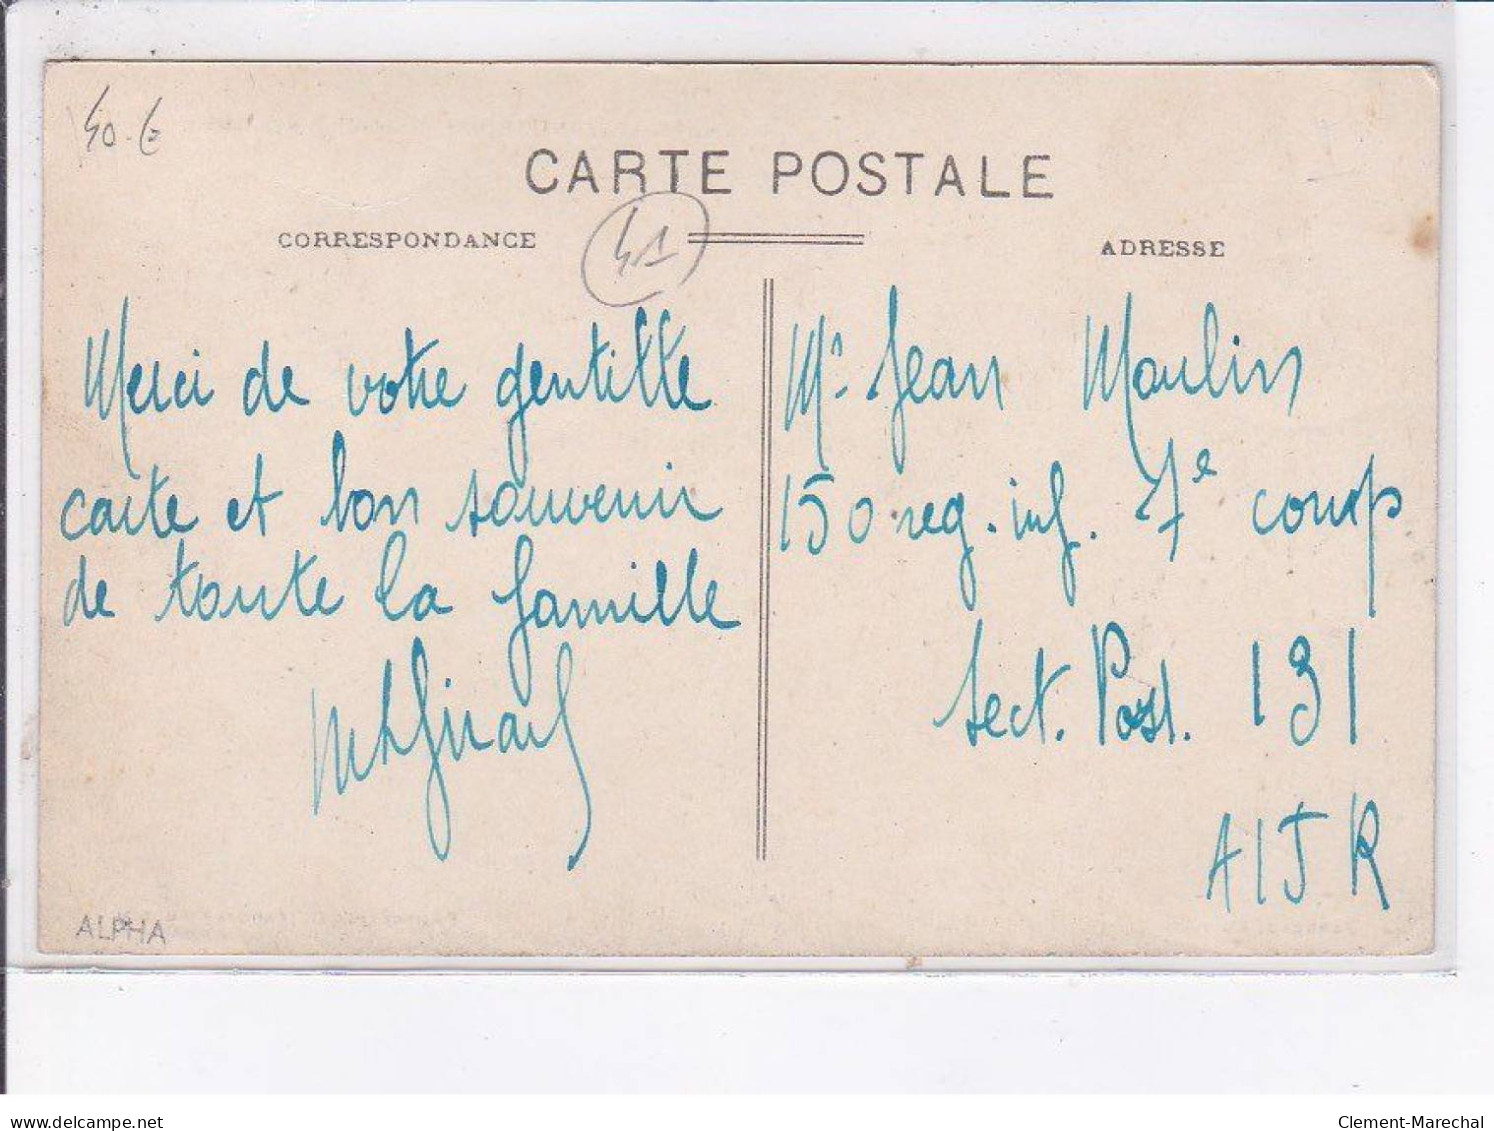 40.€
CARTE POSTALE
CORRESPONDANCE
41
ADRESSE
Merci de votre gentille
carte et bon souvenir
de toute la famille
Mr Jean Moulin
150 reg. inf. 7e comp
Sect. Post. 131
ALPHA
www.delcampe.net
Clement-Marechal